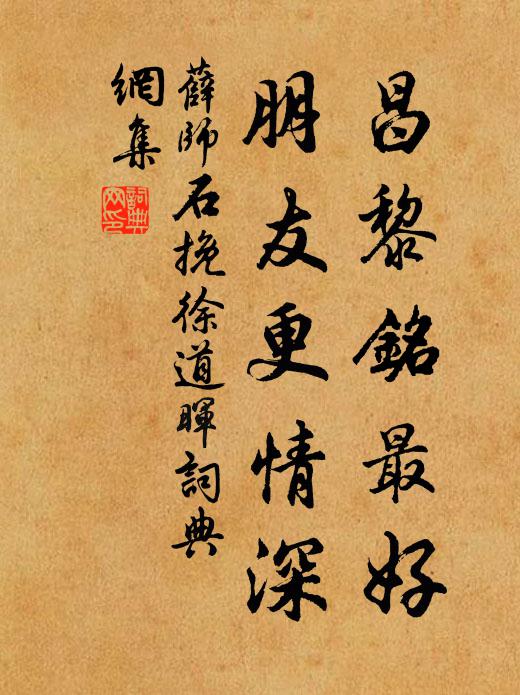 昌黎銘最好
朋友更情深
薛師石挽徐道暉詞典
網集
詞典
网印